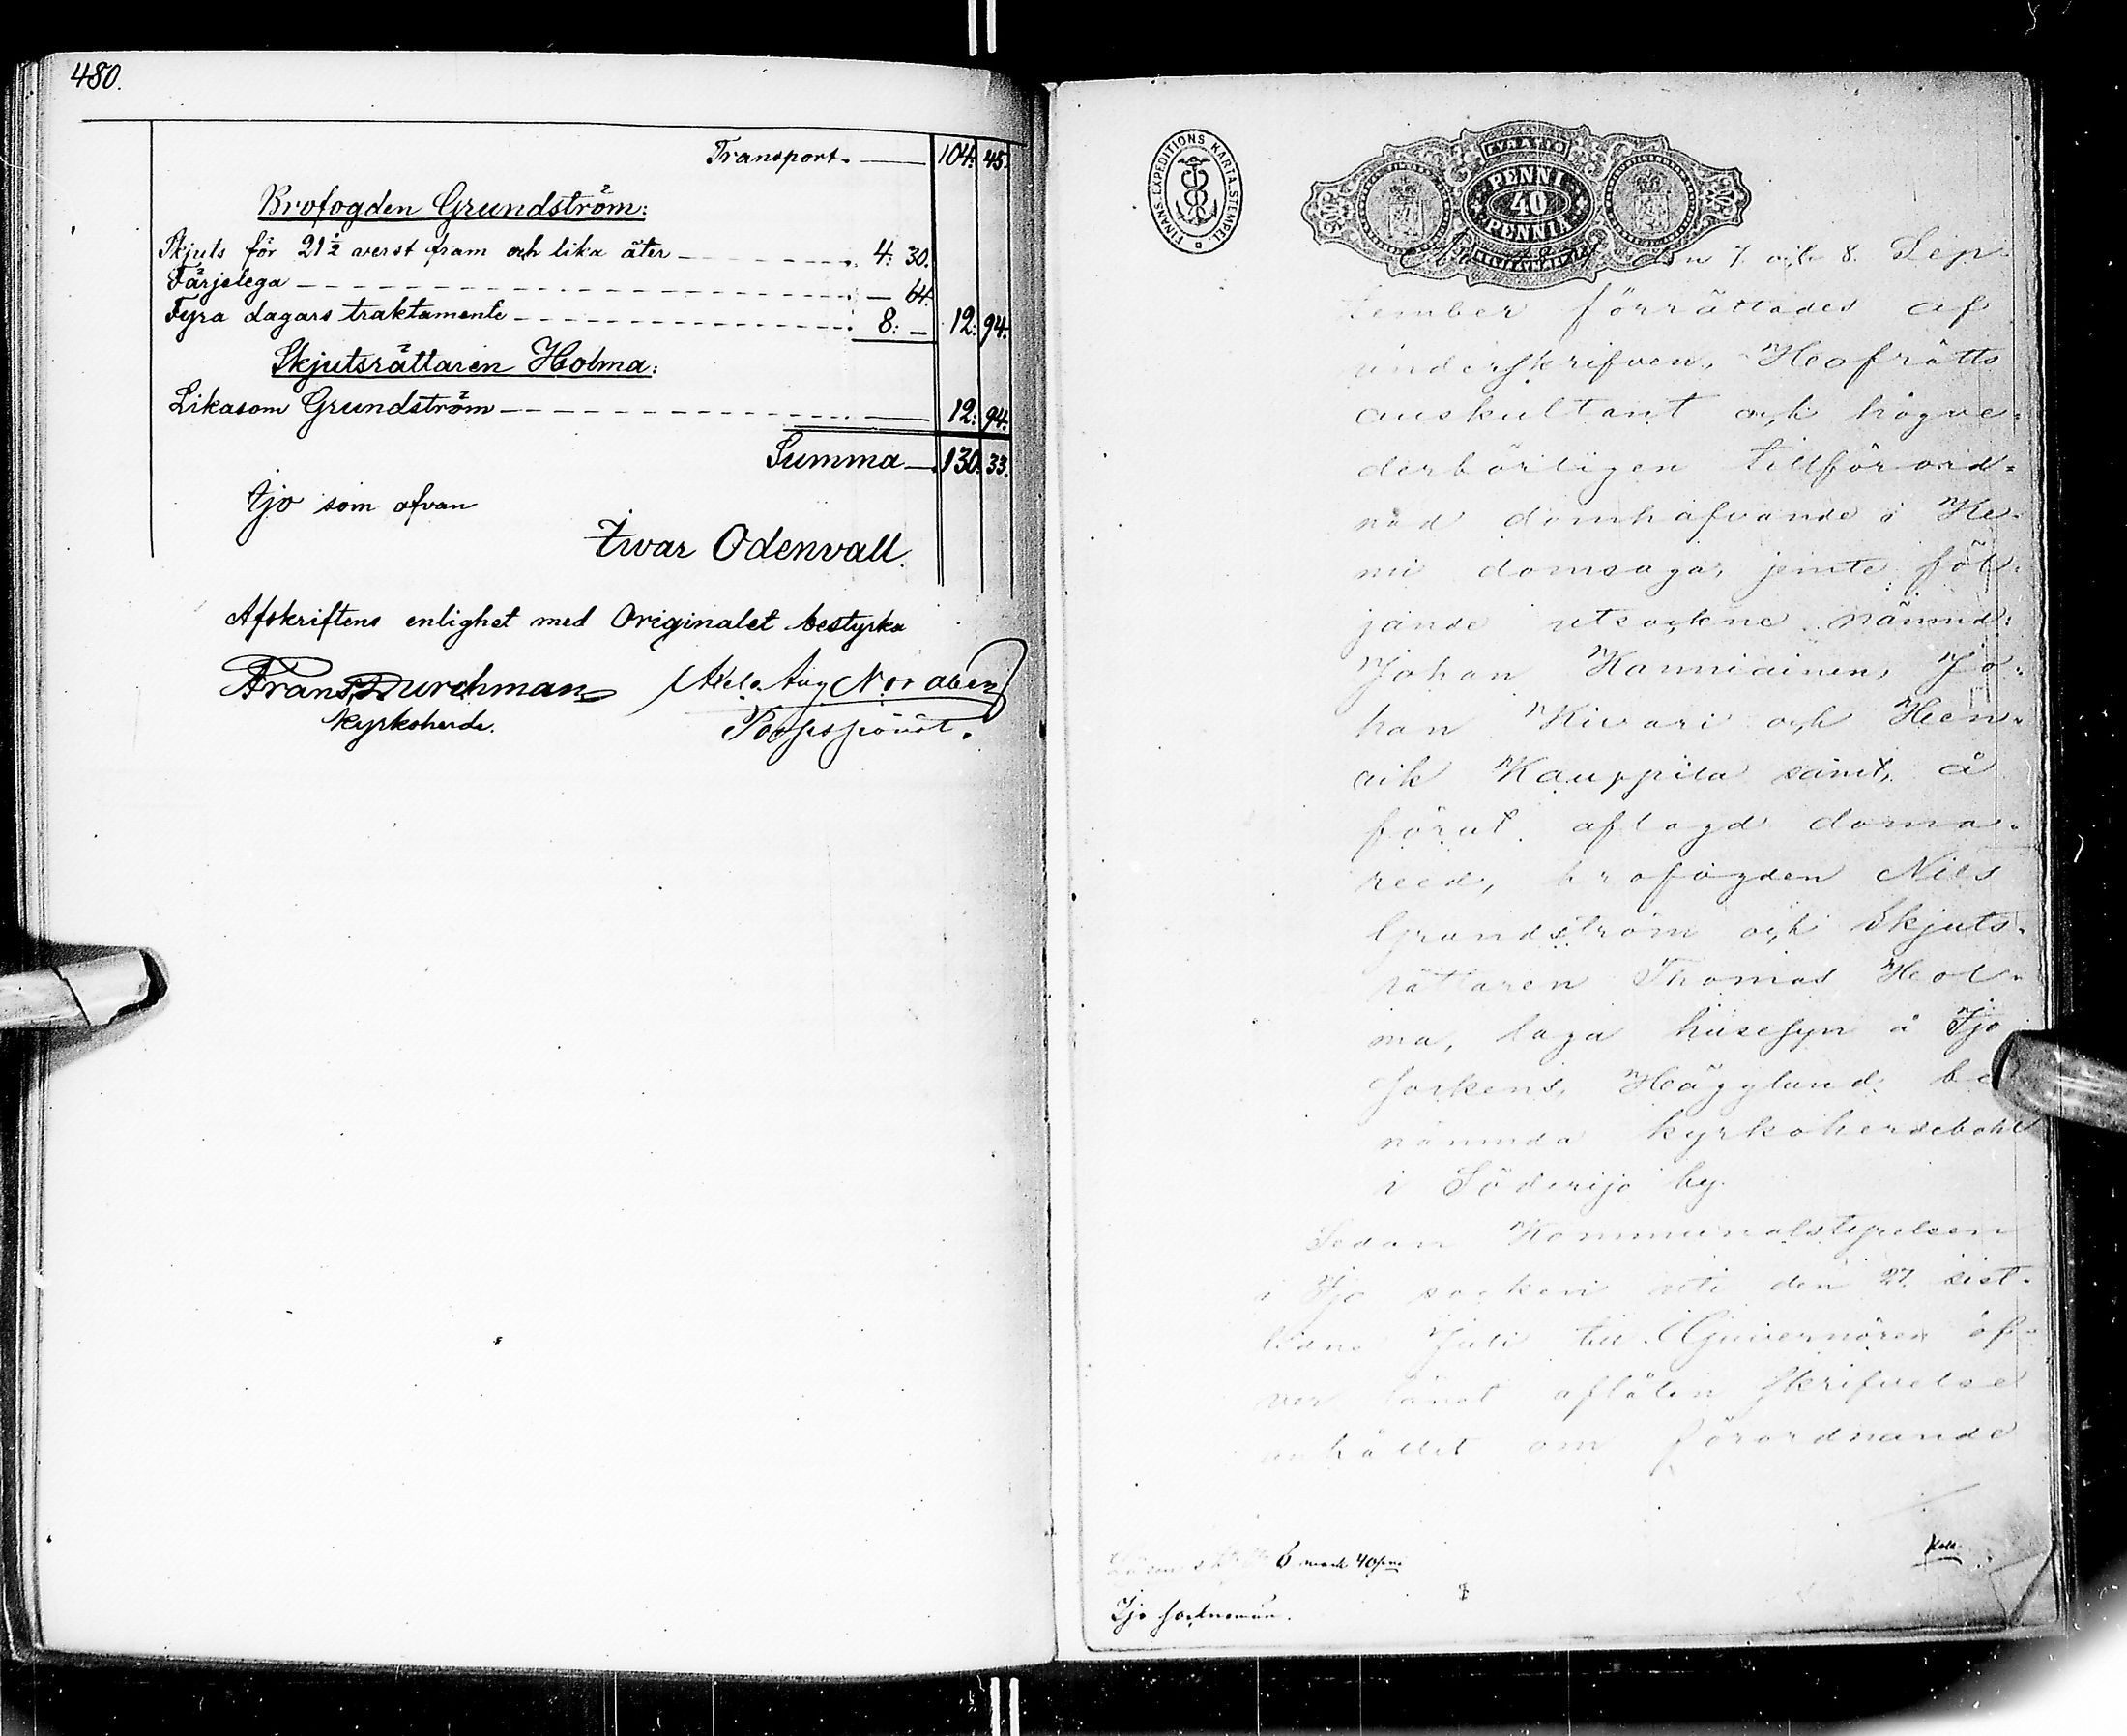 480.
Transport. — 104: 45.
Brofogden Grundström:
Skjuts för 21 ½ verst fram och lika åter — 4: 30.
Färjelega — — 64.
Fyra dagars traktamente — 8: — 12: 94.
Skjutsrättaren Holma:
Likasom Grundström — 12: 94.
Summa — 130. 33.
Ijo som ofvan
Ivar Odenvall.
Afskriftens enlighet med Originalet bestyrka
Frans Durchman
Kyrkoherde.
FINANS EXPEDITIONS KARTA.STEMPEL.
FYRATIO
PENNI
40
PENNIÄ
den 7. och 8. Sep-
tember förrättades af
underskrifven, Hofrätts
auskultant och högve-
derbörligen tillförord-
nad domhafvande i Ke-
mi domsaga, jemte föl-
jande utsockne nämnd:
Johan Hanniainen, Jo-
han Kivari och Hen-
rik Kauppila samt, å
förut aflagd doma-
reed, brofogden Nils
Grundström och Skjuts-
rättaren Thomas Hol-
ma, laga husesyn å Ijo
sockens, Hägglund be-
nämnda kyrkoherdebohl
i Söderijo by.
Sedan Kommunalstyrelsen
i Ijo socken uti den 27. sist-
lidne Juli till Guvernören öf-
ver länet aflåten skrifvelse
anhållit om förordnande
Lösen 6 mark 40 pni
Ijo sockneman.